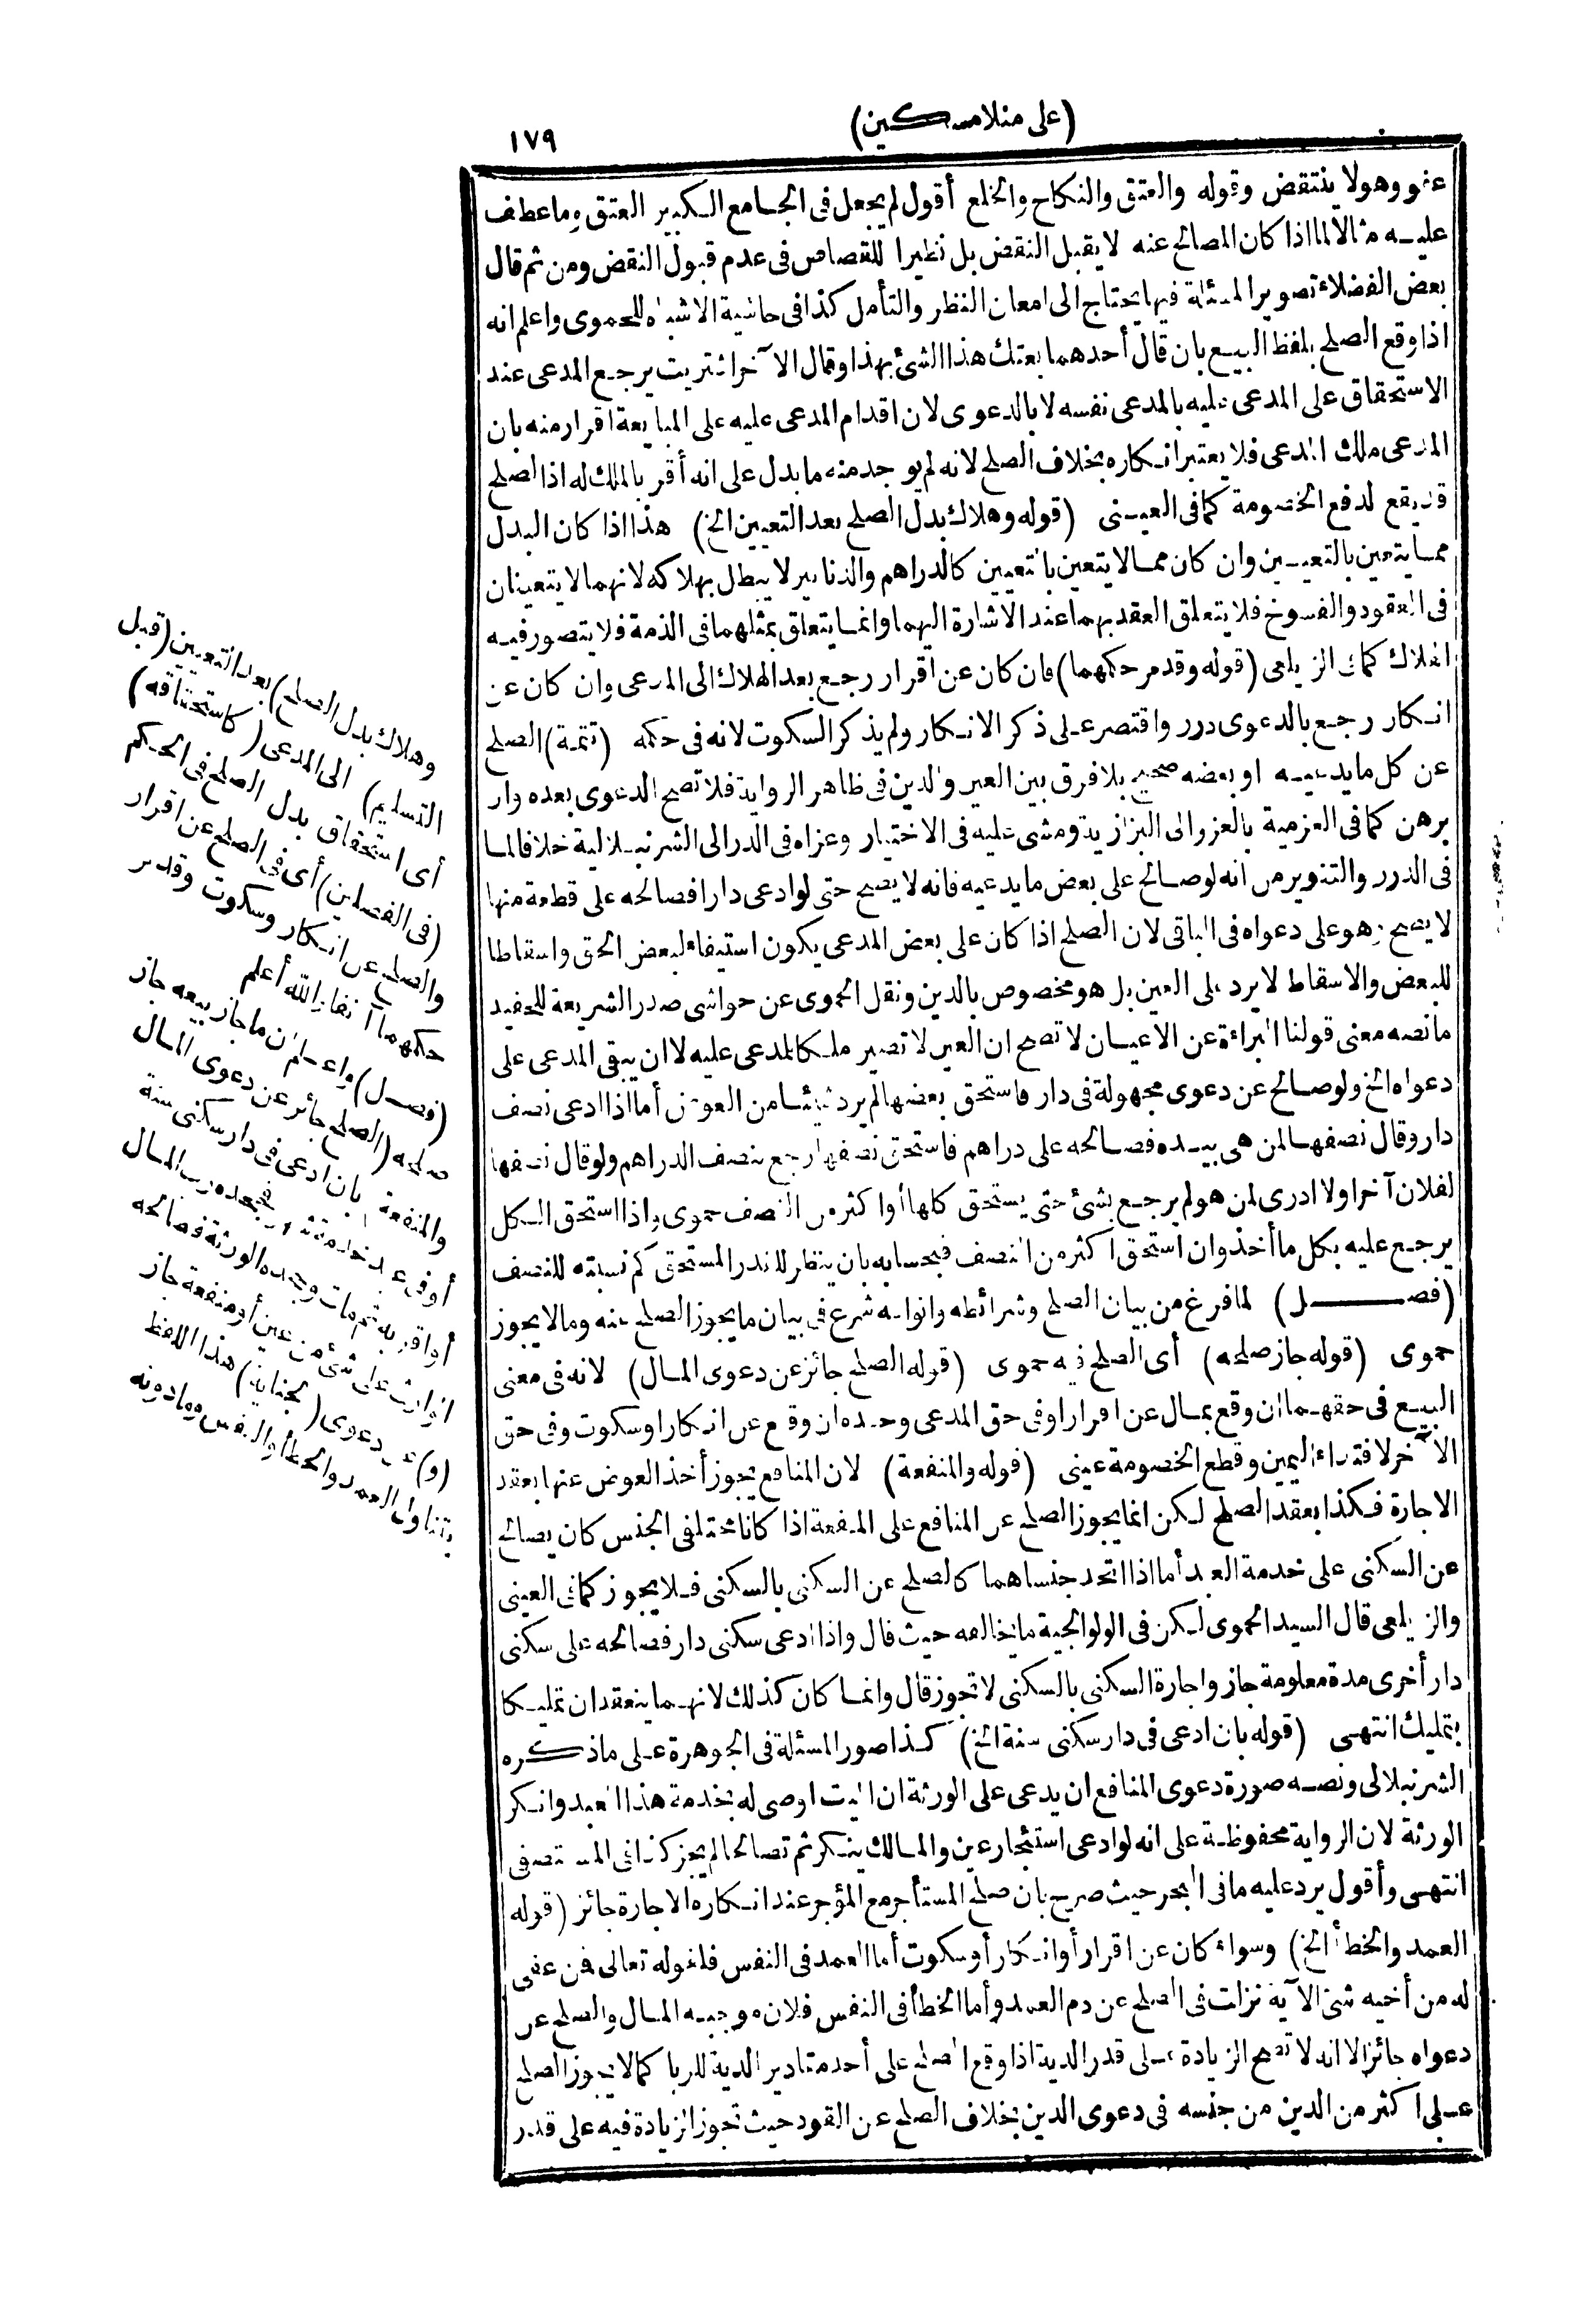 (على منلامسكين)
١٧٩
عفو وهو لا ينتقض وقوله والعتق والنكاح والخلع أقول لم يجعل فى الجامع الكبير العتق وما عطف
عليه مثالا لما اذا كان المصالح عنه لا يقبل النقض بل نظيرا للقصاص فى عدم قبول النقض ومن ثم قال
بعض الفضلاء تصوير المسئلة فيها يحتاج الى امعان النظر والتأمل كذا فى حاشية الاشباه للحموى واعلم انه
اذا وقع الصلح بلفظ البيع بان قال أحدهما بعتك هذا الشئ بهذا وقال الآخر اشتريت يرجع المدعى عند
الاستحقاق على المدعى عليه بالمدعى نفسه لا بالدعوى لان اقدام المدعى عليه على المبايعة اقرار منه بان
المدعى ملك المدعى فلا يعتبر انكاره بخلاف الصلح لانه لم يوجد منه ما يدل على انه أقر بالملك له اذ الصلح
قد يقع لدفع الخصومة كما فى العينى (قوله وهلاك بدل الصلح بعد التعيين الخ) هذا اذا كان البدل
مما يتعين بالتعيين وان كان مما لا يتعين بالتعيين كالدراهم والدنانير لا يبطل بهلاكه لانهما لا يتعينان
فى العقود والفسوخ فلا يتعلق العقد بهما عند الاشارة اليهما وانما يتعلق بمثلهما فى الذمة فلا يتصور فيه
الهلاك كما فى الزيلعى (قوله وقد مر حكمهما) فان كان عن اقرار رجع بعد الهلاك الى المدعى وان كان عن
انكار رجع بالدعوى درر واقتصر على ذكر الانكار ولم يذكر السكوت لانه فى حكمه (تتمة) الصلح
عن كل ما يدعيه او بعضه صحيح بلا فرق بين العين والدين فى ظاهر الرواية فلا تصح الدعوى بعده وان
برهن كما فى العزمية بالعزو الى البزازية ومشى عليه فى الاختيار وعزاه فى الدر الى الشرنبلالية خلافا لما
فى الدرر والتنوير من انه لو صالح على بعض ما يدعيه فانه لا يصح حتى لو ادعى دارا فصالحه على قطعة منها
لا يصح وهو على دعواه فى الباقى لان الصلح اذا كان على بعض المدعى يكون استيفاء لبعض الحق واسقاطا
للبعض والاسقاط لا يرد على العين بل هو مخصوص بالدين ونقل الحموى عن حواشى صدر الشريعة للحفيد
ما نصه معنى قولنا البراءة عن الاعيان لا تصح ان العين لا تصير ملكا للمدعى عليه لا ان يبقى المدعى على
دعواه الخ ولو صالح عن دعوى مجهولة فى دار فاستحق بعضها لم يرد شيئا من العوض أما اذا ادعى نصف
دار وقال نصفها لمن هى بيده فصالحه على دراهم فاستحق نصفها رجع بنصف الدراهم ولو قال نصفها
لفلان آخر او لا ادرى لمن هو لم يرجع بشئ حتى يستحق كلها أو اكثر من النصف حموى واذا استحق الكل
يرجع عليه بكل ما أخذ وان استحق اكثر من النصف فبحسابه بان ينظر للقدر المستحق كم نسبته للنصف
(فصل) لما فرغ من بيان الصلح وشرائطه وانواعه شرع فى بيان ما يجوز الصلح عنه وما لا يجوز
حموى (قوله جاز صلحه) أى الصلح فيه حموى (قوله الصلح جائز عن دعوى المال) لانه فى معنى
البيع فى حقهما ان وقع بمال عن اقرار او فى حق المدعى وحده ان وقع عن انكار او سكوت وفى حق
الآخر لافتداء اليمين وقطع الخصومة عينى (قوله والمنفعة) لان المنافع يجوز أخذ العوض عنها بعقد
الاجارة فكذا بعقد الصلح لكن انما يجوز الصلح عن المنافع على المنفعة اذا كانا مختلفى الجنس كان يصالح
عن السكنى على خدمة العبد أما اذا اتحد جنساهما كالصلح عن السكنى بالسكنى فلا يجوز كما فى العينى
والزيلعى قال السيد الحموى لكن فى الولوالجية ما يخالفه حيث قال واذا ادعى سكنى دار فصالحه على سكنى
دار أخرى مدة معلومة جاز واجارة السكنى بالسكنى لا تجوز قال وانما كان كذلك لانهما ينعقدان تمليكا
بتمليك انتهى (قوله بان ادعى فى دار سكنى سنة الخ) كذا صور المسئلة فى الجوهرة على ما ذكره
الشرنبلالى ونصه صورة دعوى المنافع ان يدعى على الورثة ان الميت اوصى له بخدمة هذا العبد وانكر
الورثة لان الرواية محفوظة على انه لو ادعى استئجار عين والمالك ينكر ثم تصالحا لم يجز كذا فى المستصفى
انتهى وأقول يرد عليه ما فى البحر حيث صرح بان صلح المستأجر مع المؤجر عند انكاره الاجارة جائز (قوله
العمد والخطأ الخ) وسواء كان عن اقرار أو انكار أو سكوت أما العمد فى النفس فلقوله تعالى فمن عفى
له من أخيه شئ الآية نزلت فى الصلح عن دم العمد وأما الخطأ فى النفس فلان موجبه المال والصلح عن
دعواه جائز الا انه لا تصح الزيادة على قدر الدية اذا وقع الصلح على أحد مقادير الدية للربا كما لا يجوز الصلح
على اكثر من الدين من جنسه فى دعوى الدين بخلاف الصلح عن القود حيث تجوز الزيادة فيه على قدر
وهلاك بدل الصلح) بعد التعيين (قبل
التسليم) الى المدعى (كاستحقاقه)
أى استحقاق بدل الصلح فى الحكم
(فى الفصلين) أى فى الصلح عن اقرار
والصلح عن انكار وسكوت وقد مر
حكمهما آنفا والله أعلم
(فصل) واعلم ان ما جاز بيعه جاز
صلحه (الصلح جائز عن دعوى المال
والمنفعة) بان ادعى فى دار سكنى سنة
أو فى عبد خدمة شهر فجحده رب المال
أو اقر به ثم مات وجحده الورثة فصالحه
الوارث على شئ من عين أو منفعة جاز
(و) عن دعوى (الجناية) هذا اللفظ
يتناول العمد والخطأ والنفس وما دونه